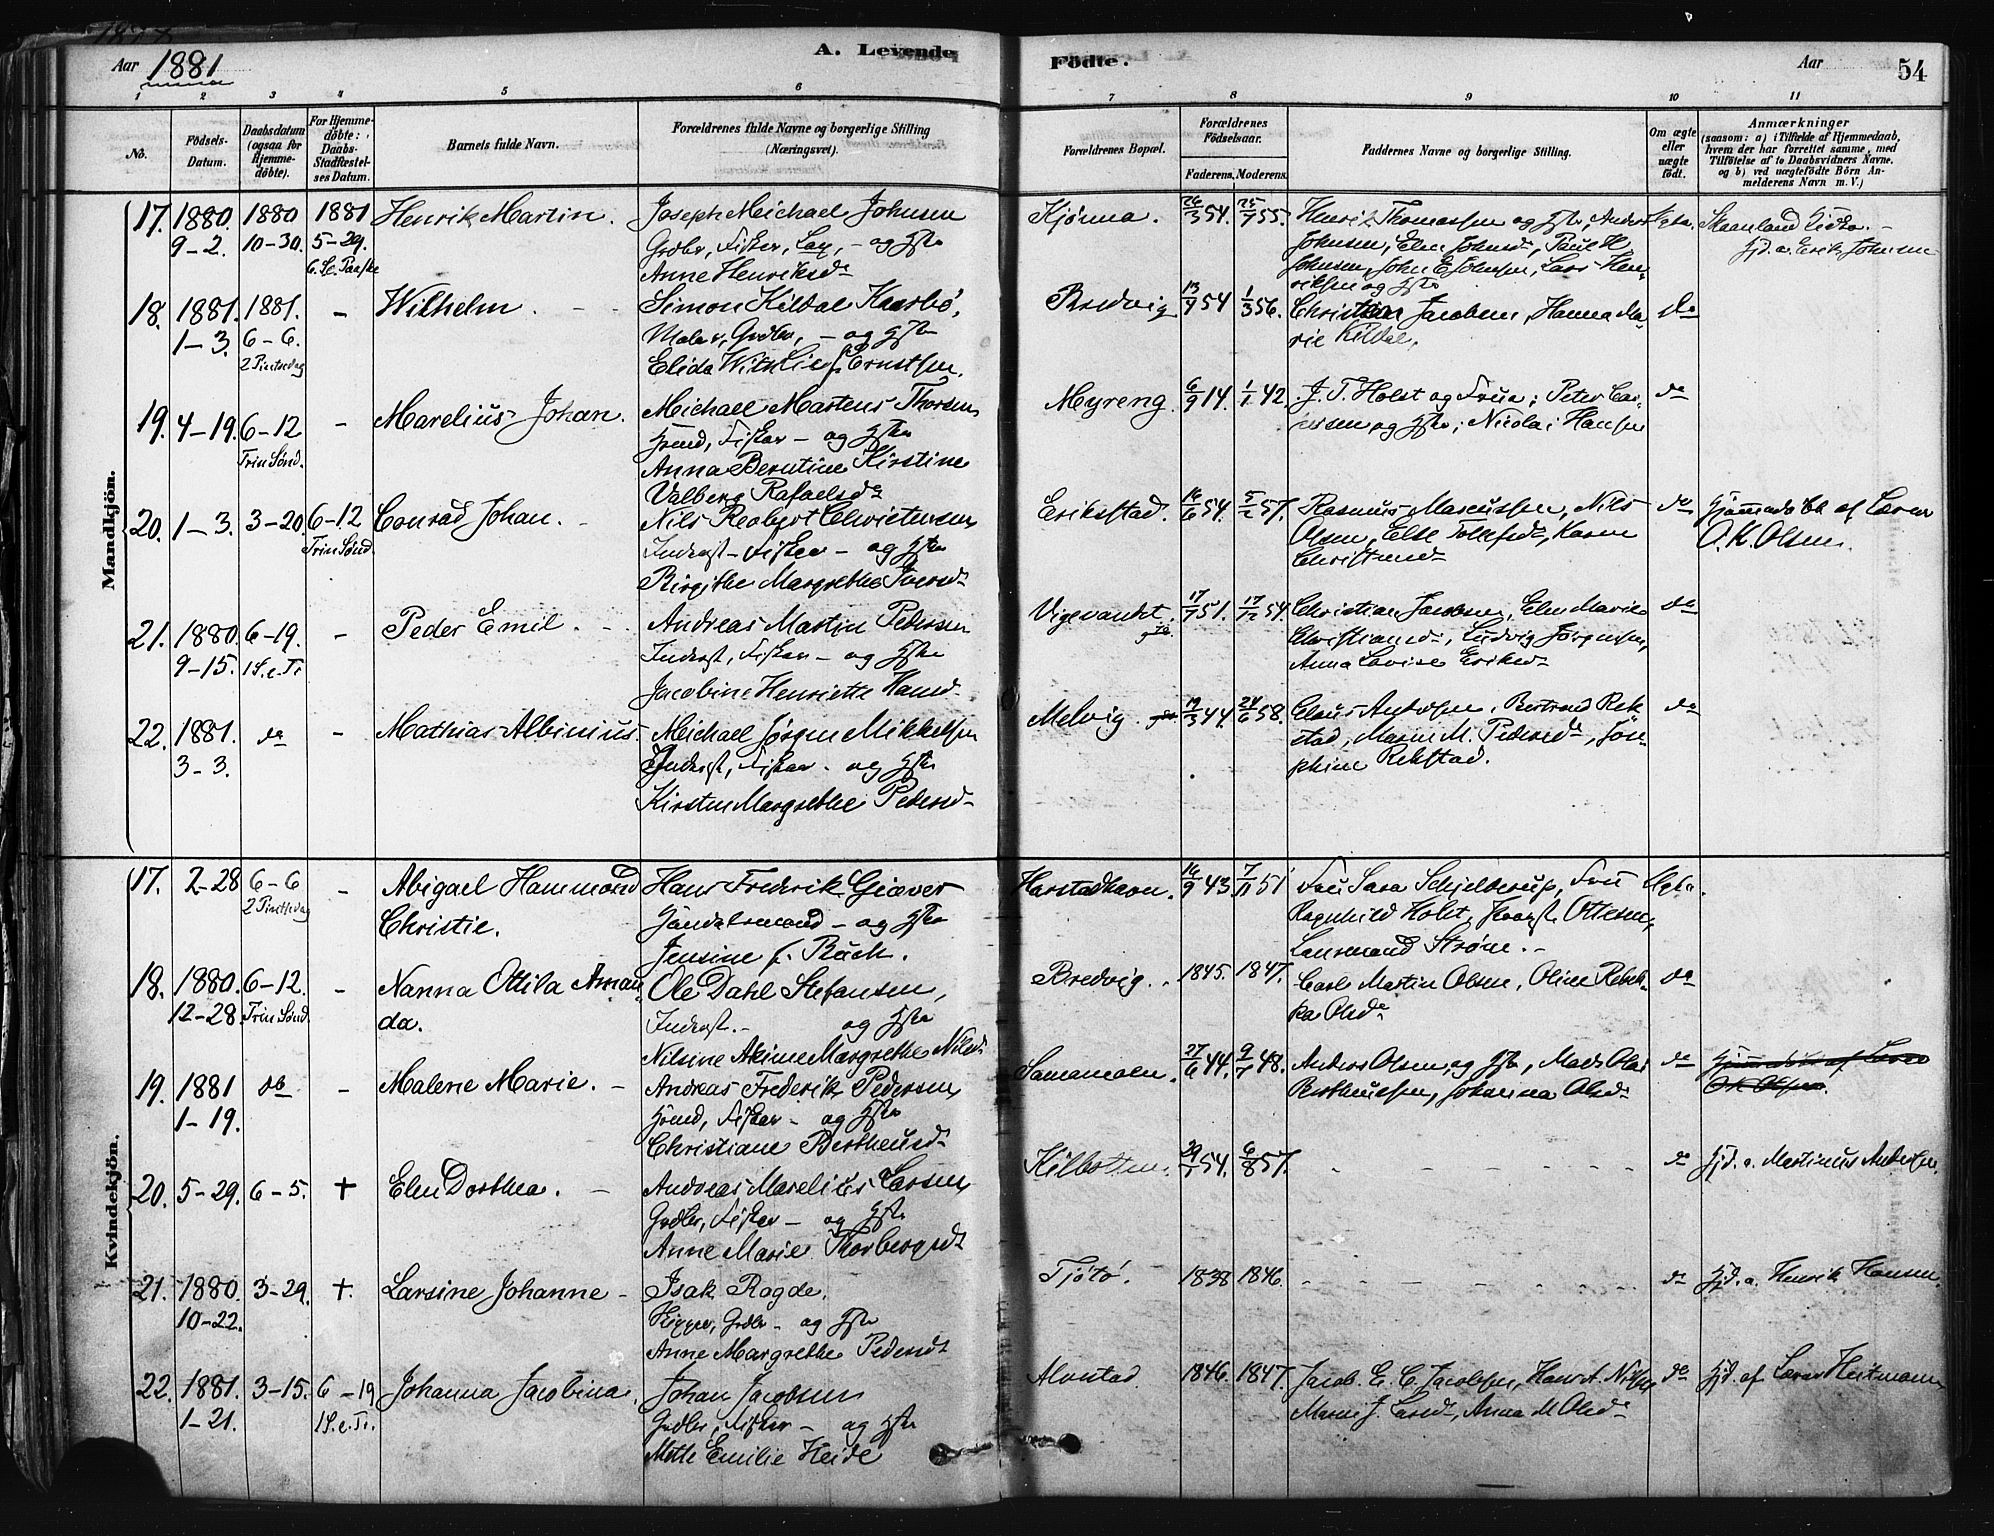 Aar 1881
A. Levende
Födte.
Aar
54
1 2 3 4 5 6 7 8 9 10 11
No.
Födsels-Datum.
Daabsdatum (ogsaa for Hjemmedöbte).
For Hjemmedöbte: Daabs-Stadfæstelses Datum.
Barnets fulde Navn.
Forældrenes fulde Navne og borgerlige Stilling (Næringsvei).
Forældrenes Bopæl.
Forældrenes Födselsaar.
Faderens. Moderens.
Faddernes Navne og borgerlige Stilling.
Om ægte eller uægte födt.
Anmærkninger
(saasom: a) i Tilfælde af Hjemmedaab, hvem der har forrettet samme, med Tilföielse af to Daabsvidners Navne. og b) ved uægtefödte Börn Anmelderens Navn m. V.)
Mandkjön.
17. 1880. 9-2. 1880 10-30. 1881 5-29. 6. S. e. Paaske
Henrik Martin.
Joseph Meichael Johnsen
Grdbr, Fisker, Lap, - og Hstr
Anne Henriksdr
Kjönna. 26/3 54. 25/7 55.
Henrik Thomassen og Hstr, Anders
Johnsen, Elen Johnsdr, Paul H
Johnsen, John E Johnsen, Lars Hen-
riksen og Hstr
Ægte. Skaanland Lidto. -
Hjd. a. Erik Johnsen
18. 1881. 1-3. 1881. 6-6. 2 Pintsedag -
Wilhelm
Simon Kildal Kaarbö,
Maler, Grdbr, - og Hstr
Elida Wits Lie f. Ernstsen.
Bredvig 13/9 54 1/3 56.
Christian Jacobsen, Hanna Ma-
rie Kildal.
do
19. 4-19. 6-12 Trin Sönd. -
Marelius Johan.
Meichael Martens Thorsen
Hmd, Fisker - og Hstr
Anna Berntine Kirstine
Valberg Rafaelsdr
Myreng. 6/9 14. 1/1 42.
J. T. Holst og Frue; Peter Lar-
sen og Hstr; Nicolai Hansen
do
20. 1-3. 3-20. 6-12 Trin Sönd.
Conrad Johan.
Nils Reobert Christensen
Inderst - Fisker - og Hstr
Birgithe Margrethe Iversdr
Eriksstad. 16/6 54. 5/2 57.
Rasmus Marcussen, Nils
Olsen, Else Tollefsdr, Karen
Christiansdr
do Hjemmedöbt af Lærer
O. K. Olsen.
21. 1880. 9-15. 6-19. 1 S. e. Tr -
Peder Emil.
Andreas Martin Pedersen
Inderst, Fisker - og Hstr
Jacobine Henriette Hansdr
Vigevandet. 17/7 51. 17/12 54.
Christian Jacobsen, Elen Marie
Christiansdr, Ludvig Jörgensen,
Anna Lovise Eriksdr
do
22. 1881. 3-3. do -
Mathias Albinius.
Meichael Jörgen Mikkelsen
Inderst, Fisker - og Hstr
Kirsten Margrethe Pedersdr
Melvig. 19/3 44. 24/6 58.
Claus Antonsen, Bertrand Rek-
stad, Maren M. Pedersdr, Jose-
phine Rekstad.
do
Kvindekjön.
17. 2-28 6-6 2 Pintsedag -
Abigael Hammond
Christie.
Hans Frederik Giæver
Handelsmand - og Hstr
Jensine f. Bach.
Harstadhavn. 16/9 43. 7/11 51
Fru Sara Schjelderup, Fru
Ragnhild Holst, Ottesen,
Lensmand Ström. -
Ægte.
18. 1880. 12-28. 6-12. Trin Sönd. -
Nanna Ottila Aman-
da.
Ole Dahl Stefansen,
Inderst. - og Hstr
Nilsine Akime Margrethe Nilsdr
Bredvig. 1845. 1847.
Carl Martin Olsen, Oline Rebek-
ka Olsdr
do
19. 1881 1-19. do -
Malene Marie.
Andreas Frederik Pedersen
Hmd, Fisker - og Hstr
Christiane Bertheusdr
Samamoen. 27/6 44. 9/7 48.
Anders Olsen og Hstr, Mads Olai
Bertheussen, Johanna Olsdr
do Hjemmedöbt af Lærer
O K Olsen.
20. 5-29. 6-5. +
Elen Dorthea.
Andreas Marelius Larsen
Grdbr, Fisker - og Hstr
Anne Marie Thorbergsdr
Kilbotten. 29/1 54. 6/8 57.
do Hjd. a. Martinus Andersen.
21. 1880. 10-22. 3-29. +.
Larsine Johanne
Isak Ragde.
Skipper, Grdbr - og Hstr
Anne Margrethe Pedersdr
Tjötö. 1838 1846.
do Hjd. a. Henrik Hansen.
22. 1881. 1-21. 3-15. 6-19 1 S. e. Tr.
Johanna Jacobina.
Johan Jacobsen
Grdbr, Fisker - og Hstr
Mette Emilie Heide
Alvstad. 1846. 1847.
Jacob. E. C. Jacobsen, Hans A. Nilsen
Maren J. Larsdr, Anna M Olsdr
do Hjd. af Lærer Heitmann